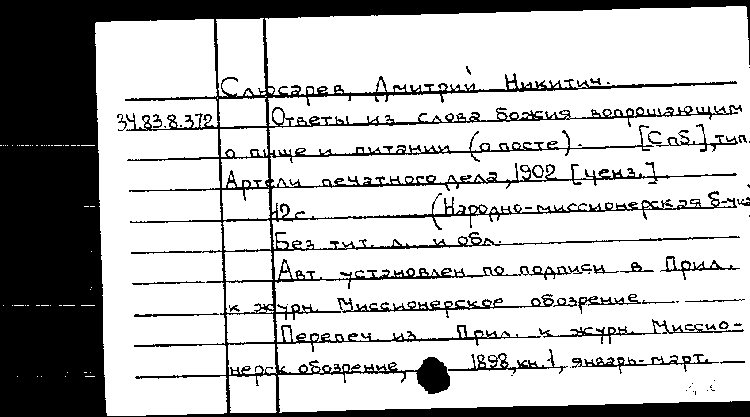 Слюсарев, Дмитрий Никитич.
34.83.8.372 Ответы из слова божия вопрошающим
о пище и питании (о посте). [Спб.], тип.
Артели печатного дела, 1902 [ценз.].
12 с. (Народно-миссионерская б-чка)
Без тит. л. и обл.
Авт. установлен по подписи в Прил.
к журн. Миссионерское обозрение.
Перепеч из Прил. к журн. Миссио-
нерск обозрение, 1898, кн. 1, январь-март.